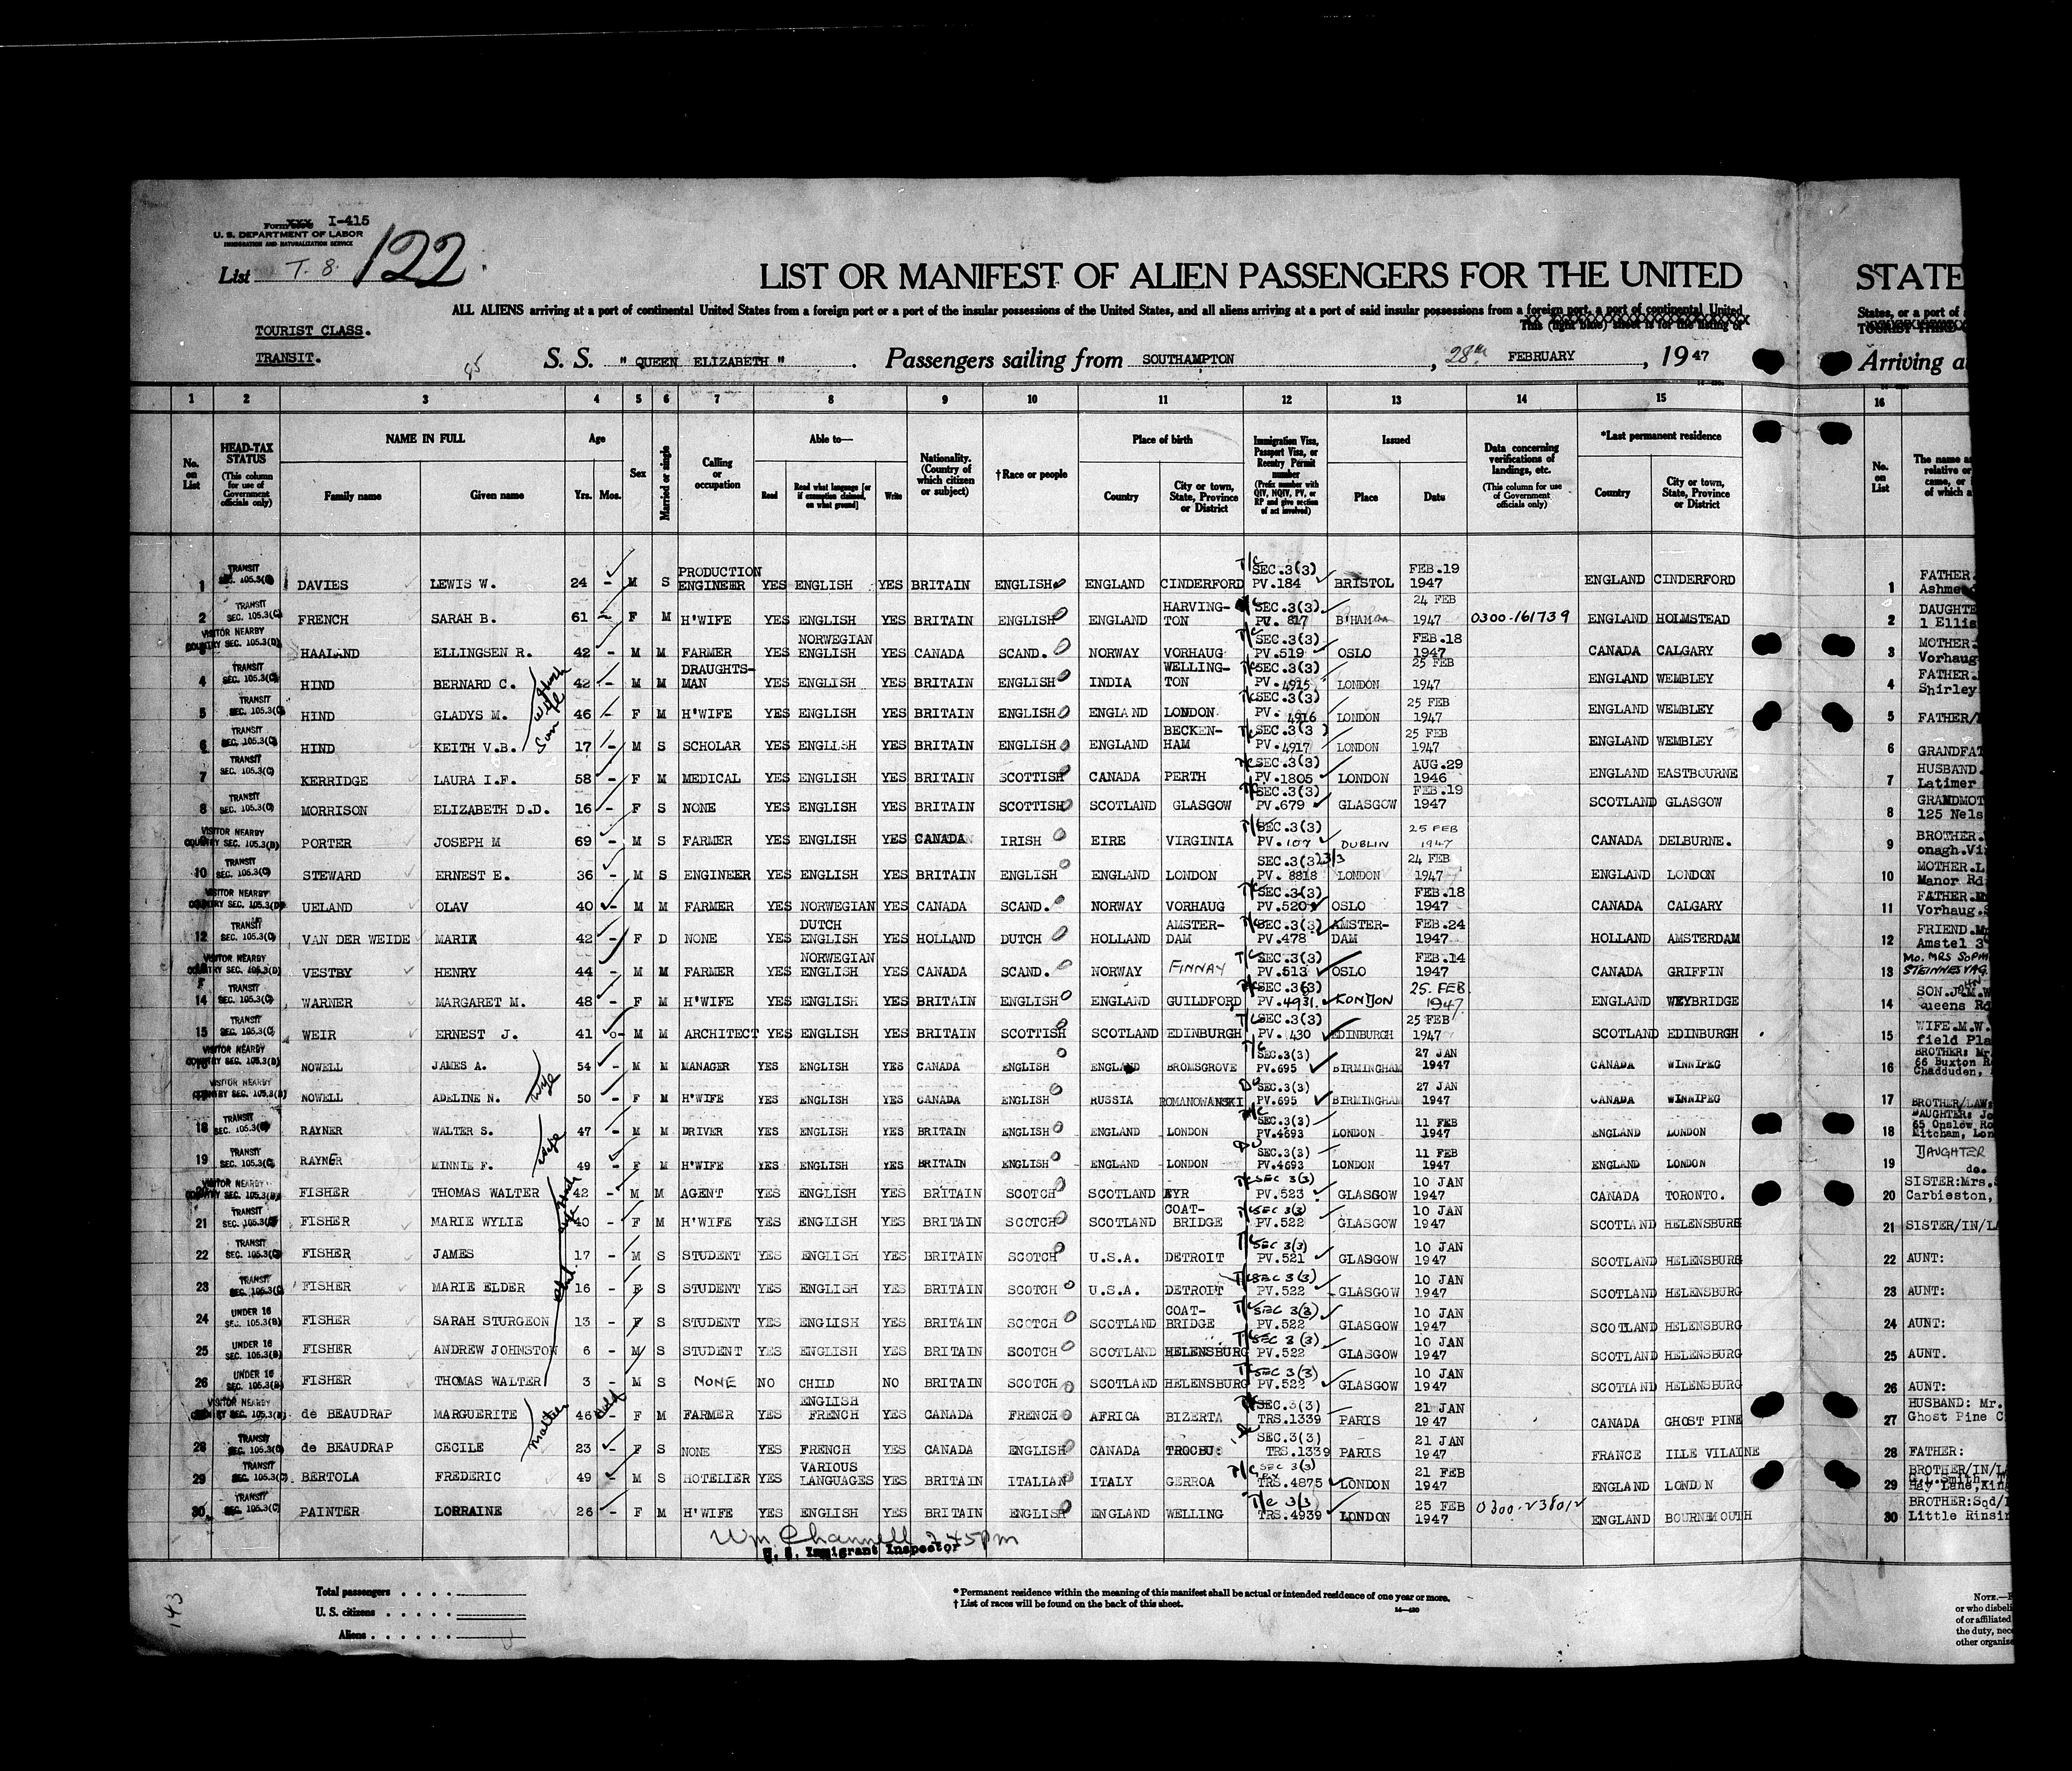 Form XXX I-415
U. S. DEPARTMENT OF LABOR
IMMIGRATION AND NATURALIZATION SERVICE
List T. 8. 122
LIST OR MANIFEST OF ALIEN PASSENGERS FOR THE UNITED
STATE
ALL ALIENS arriving at a port of continental United States from a foreign port or a port of the insular possessions of the United States, and all aliens arriving at a port of said insular possessions from a foreign port, a port of continental United
States, or a port of
This (light buff) sheet is for the listing of
TOURIST CLASS.
TRANSIT.
S. S. " QUEEN ELIZABETH ". Passengers sailing from SOUTHAMPTON, 28th FEBRUARY, 1947
Arriving a
1 2 3 4 5 6 7 8 9 10 11 12 13 14 15 16
No. on List
HEAD-TAX STATUS (This column for use of Government officials only)
NAME IN FULL
Family name
Given name
Age
Yrs. Mos.
Sex
Married or single
Calling or occupation
Able to—
Read
Read what language [or if exemption claimed, on what ground]
Write
Nationality. (Country of which citizen or subject)
†Race or people
Place of birth
Country
City or town, State, Province or District
Immigration Visa, Passport Visa, or Reentry Permit number (Prefix number with QIV, NQIV, PV, or RP and give section of act involved)
Issued
Place
Date
Data concerning verifications of landings, etc. (This column for use of Government officials only)
*Last permanent residence
Country
City or town, State, Province or District
No. on List
The name a
relative or
came, or
of which a
1 TRANSIT SEC. 105.3(C) DAVIES LEWIS W. 24 - M S PRODUCTION ENGINEER YES ENGLISH YES BRITAIN ENGLISH ENGLAND CINDERFORD T/C SEC.3(3) PV.184 BRISTOL FEB.19 1947 ENGLAND CINDERFORD 1 FATHER. Ashme
2 TRANSIT SEC. 105.3(C) FRENCH SARAH B. 61 - F M H'WIFE YES ENGLISH YES BRITAIN ENGLISH ENGLAND HARVINGTON SEC.3(3) PV. 817 B'HAM 24 FEB 1947 0300-161739 ENGLAND HOLMSTEAD 2 DAUGHTE 1 Ellis
3 VISITOR NEARBY COUNTRY SEC. 105.3(D) HAALAND ELLINGSEN R. 42 - M M FARMER YES NORWEGIAN ENGLISH YES CANADA SCAND. NORWAY VORHAUG T/C SEC.3(3) PV.519 OSLO FEB.18 1947 CANADA CALGARY 3 MOTHER. Vorhaug
4 TRANSIT SEC. 105.3(C) HIND BERNARD C. Husb 42 - M M DRAUGHTS-MAN YES ENGLISH YES BRITAIN ENGLISH INDIA WELLING-TON SEC.3(3) PV. 4915 LONDON 25 FEB 1947 ENGLAND WEMBLEY 4 FATHER. Shirley
5 TRANSIT SEC. 105.3(C) HIND GLADYS M. Wife 46 - F M H'WIFE YES ENGLISH YES BRITAIN ENGLISH ENGLAND LONDON SEC.3(3) PV. 4916 LONDON 25 FEB 1947 ENGLAND WEMBLEY 5 FATHER/
6 TRANSIT SEC. 105.3(C) HIND KEITH V.B. Son 17 - M S SCHOLAR YES ENGLISH YES BRITAIN ENGLISH ENGLAND BECKEN-HAM SEC.3(3) PV.4917 LONDON 25 FEB 1947 ENGLAND WEMBLEY 6 GRANDFAT
7 TRANSIT SEC. 105.3(C) KERRIDGE LAURA I.F. 58 - F M MEDICAL YES ENGLISH YES BRITAIN SCOTTISH CANADA PERTH SEC.3(3) PV.1805 LONDON AUG.29 1946 ENGLAND EASTBOURNE 7 HUSBAND. Latimer
8 TRANSIT SEC. 105.3(C) MORRISON ELIZABETH D.D. 16 - F S NONE YES ENGLISH YES BRITAIN SCOTTISH SCOTLAND GLASGOW SEC.3(3) PV.679 GLASGOW FEB.19 1947 SCOTLAND GLASGOW 8 GRANDMOT 125 Nels
9 VISITOR NEARBY COUNTRY SEC. 105.3(D) PORTER JOSEPH M 69 - M S FARMER YES ENGLISH YES CANADA IRISH EIRE VIRGINIA T/C SEC.3(3) PV. 107 DUBLIN 25 FEB 1947 CANADA DELBURNE. 9 BROTHER. onagh.Vi
10 TRANSIT SEC. 105.3(C) STEWARD ERNEST E. 36 - M S ENGINEER YES ENGLISH YES BRITAIN ENGLISH ENGLAND LONDON SEC.3(3) PV. 8818 LONDON 24 FEB 1947 ENGLAND LONDON 10 MOTHER.L Manor Rd
11 VISITOR NEARBY COUNTRY SEC. 105.3(D) UELAND OLAV 40 - M M FARMER YES NORWEGIAN YES CANADA SCAND. NORWAY VORHAUG SEC.3(3) PV.520 OSLO FEB.18 1947 CANADA CALGARY 11 FATHER. Vorhaug.
12 TRANSIT SEC. 105.3(C) VAN DER WEIDE MARIE 42 - F D NONE YES DUTCH ENGLISH YES HOLLAND DUTCH HOLLAND AMSTER-DAM SEC.3(3) PV.478 AMSTER-DAM FEB.24 1947 HOLLAND AMSTERDAM 12 FRIEND. Amstel
13 VISITOR NEARBY COUNTRY SEC. 105.3(D) VESTBY HENRY 44 - M M FARMER YES NORWEGIAN ENGLISH YES CANADA SCAND. NORWAY FINNAY T/C SEC.3(3) PV.513 OSLO FEB.14 1947 CANADA GRIFFIN 13 MO. MRS SOPH STEINNESVAG
14 TRANSIT SEC. 105.3(C) WARNER MARGARET M. 48 - F M H'WIFE YES ENGLISH YES BRITAIN ENGLISH ENGLAND GUILDFORD SEC.3(3) PV.4931. LONDON 25. FEB 1947 ENGLAND WEYBRIDGE 14 SON.J.M.W ueens Rd
15 TRANSIT SEC. 105.3(C) WEIR ERNEST J. 41 - M M ARCHITECT YES ENGLISH YES BRITAIN SCOTTISH SCOTLAND EDINBURGH SEC.3(3) PV. 430 EDINBURGH 25 FEB 1947 SCOTLAND EDINBURGH 15 WIFE.M.W. field Pla
16 VISITOR NEARBY COUNTRY SEC. 105.3(D) NOWELL JAMES A. 54 - M M MANAGER YES ENGLISH YES CANADA ENGLISH ENGLAND BROMSGROVE T/C SEC.3(3) PV.695 BIRMINGHAM 27 JAN 1947 CANADA WINNIPEG 16 BROTHER: Mr. 66 Buxton R Chadduden,
17 VISITOR NEARBY COUNTRY SEC. 105.3(D) NOWELL ADELINE N. Wife 50 - F M H'WIFE YES ENGLISH YES CANADA ENGLISH RUSSIA ROMANOWANSKI SEC.3(3) PV.695 BIRMINGHAM 27 JAN 1947 CANADA WINNIPEG 17 BROTHER/LAW:
18 TRANSIT SEC. 105.3(C) RAYNER WALTER S. 47 - M M DRIVER YES ENGLISH YES BRITAIN ENGLISH ENGLAND LONDON SEC.3(3) PV.4693 LONDON 11 FEB 1947 ENGLAND LONDON 18 DAUGHTER: Jo 65 Onslow Ro Mitcham, Lon
19 TRANSIT SEC. 105.3(C) RAYNER MINNIE F. Wife 49 - F M H'WIFE YES ENGLISH YES BRITAIN ENGLISH ENGLAND LONDON SEC.3(3) PV.4693 LONDON 11 FEB 1947 ENGLAND LONDON 19 DAUGHTER do.
20 VISITOR NEARBY COUNTRY SEC. 105.3(D) FISHER THOMAS WALTER 42 - M M AGENT YES ENGLISH YES BRITAIN SCOTCH SCOTLAND AYR SEC 3(3) PV.523 GLASGOW 10 JAN 1947 CANADA TORONTO. 20 SISTER:Mrs. Carbieston,
21 TRANSIT SEC. 105.3(C) FISHER MARIE WYLIE 40 - F M H'WIFE YES ENGLISH YES BRITAIN SCOTCH SCOTLAND COAT-BRIDGE SEC 3(3) PV.522 GLASGOW 10 JAN 1947 SCOTLAND HELENSBURG 21 SISTER/IN/LA
22 TRANSIT SEC. 105.3(C) FISHER JAMES 17 - M S STUDENT YES ENGLISH YES BRITAIN SCOTCH U.S.A. DETROIT SEC 3(3) PV.521 GLASGOW 10 JAN 1947 SCOTLAND HELENSBURG 22 AUNT:
23 TRANSIT SEC. 105.3(C) FISHER MARIE ELDER 16 - F S STUDENT YES ENGLISH YES BRITAIN SCOTCH U.S.A. DETROIT SEC 3(3) PV.522 GLASGOW 10 JAN 1947 SCOTLAND HELENSBURG 23 AUNT:
24 UNDER 16 SEC. 105.3(B) FISHER SARAH STURGEON 13 - F S STUDENT YES ENGLISH YES BRITAIN SCOTCH SCOTLAND COAT-BRIDGE SEC 3(3) PV.522 GLASGOW 10 JAN 1947 SCOTLAND HELENSBURG 24 AUNT:
25 UNDER 16 SEC. 105.3(B) FISHER ANDREW JOHNSTON 6 - M S STUDENT YES ENGLISH YES BRITAIN SCOTCH SCOTLAND HELENSBURG SEC 3(3) PV.522 GLASGOW 10 JAN 1947 SCOTLAND HELENSBURG 25 AUNT.
26 UNDER 16 SEC. 105.3(B) FISHER THOMAS WALTER 3 - M S NONE NO CHILD NO BRITAIN SCOTCH SCOTLAND HELENSBURG SEC 3(3) PV.522 GLASGOW 10 JAN 1947 SCOTLAND HELENSBURG 26 AUNT:
27 VISITOR NEARBY COUNTRY SEC. 105.3(D) de BEAUDRAP MARGUERITE Mother 46 - F M FARMER YES ENGLISH FRENCH YES CANADA FRENCH AFRICA BIZERTA SEC.3(3) TRS.1339 PARIS 21 JAN 1947 CANADA GHOST PINE 27 HUSBAND: Mr. Ghost Pine C
28 TRANSIT SEC. 105.3(C) de BEAUDRAP CECILE 23 - F S NONE YES FRENCH YES CANADA ENGLISH CANADA TROCHU: SEC.3(3) TRS.1339 PARIS 21 JAN 1947 FRANCE ILLE VILAINE 28 FATHER:
29 TRANSIT SEC. 105.3(C) BERTOLA FREDERIC 49 - M S HOTELIER YES VARIOUS LANGUAGES YES BRITAIN ITALIAN ITALY GERROA T/C SEC 3(3) TRS.4875 LONDON 21 FEB 1947 ENGLAND LONDON 29 BROTHER/IN/L G.L.Smith, Hay Lane,King
30 TRANSIT SEC. 105.3(C) PAINTER LORRAINE 26 - F M H'WIFE YES ENGLISH YES BRITAIN ENGLISH ENGLAND WELLING T/C 3/3 TRS.4939 LONDON 25 FEB 1947 ENGLAND BOURNEMOUTH 30 BROTHER:Sqd/ Little Rinsin
Wm. Channell 2.45pm
U. S. Immigrant Inspector
Total passengers . . . .
U. S. citizens . . . . .
Aliens . . . . . .
* Permanent residence within the meaning of this manifest shall be actual or intended residence of one year or more.
† List of races will be found on the back of this sheet.
143
NOTE.—
or who disbeli
of or affiliated
the duty, nec
other organiz